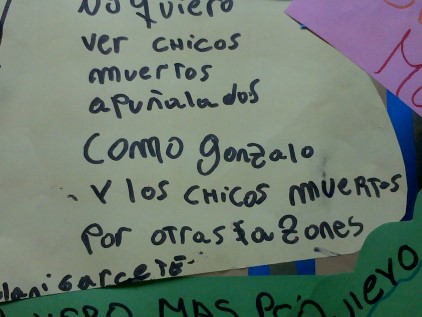 No quiero
ver CHICOS
muertos
apuñalados
Como gonzalo
Y los CHICOS muertos
Por otras razones
lani Garcete
MAS